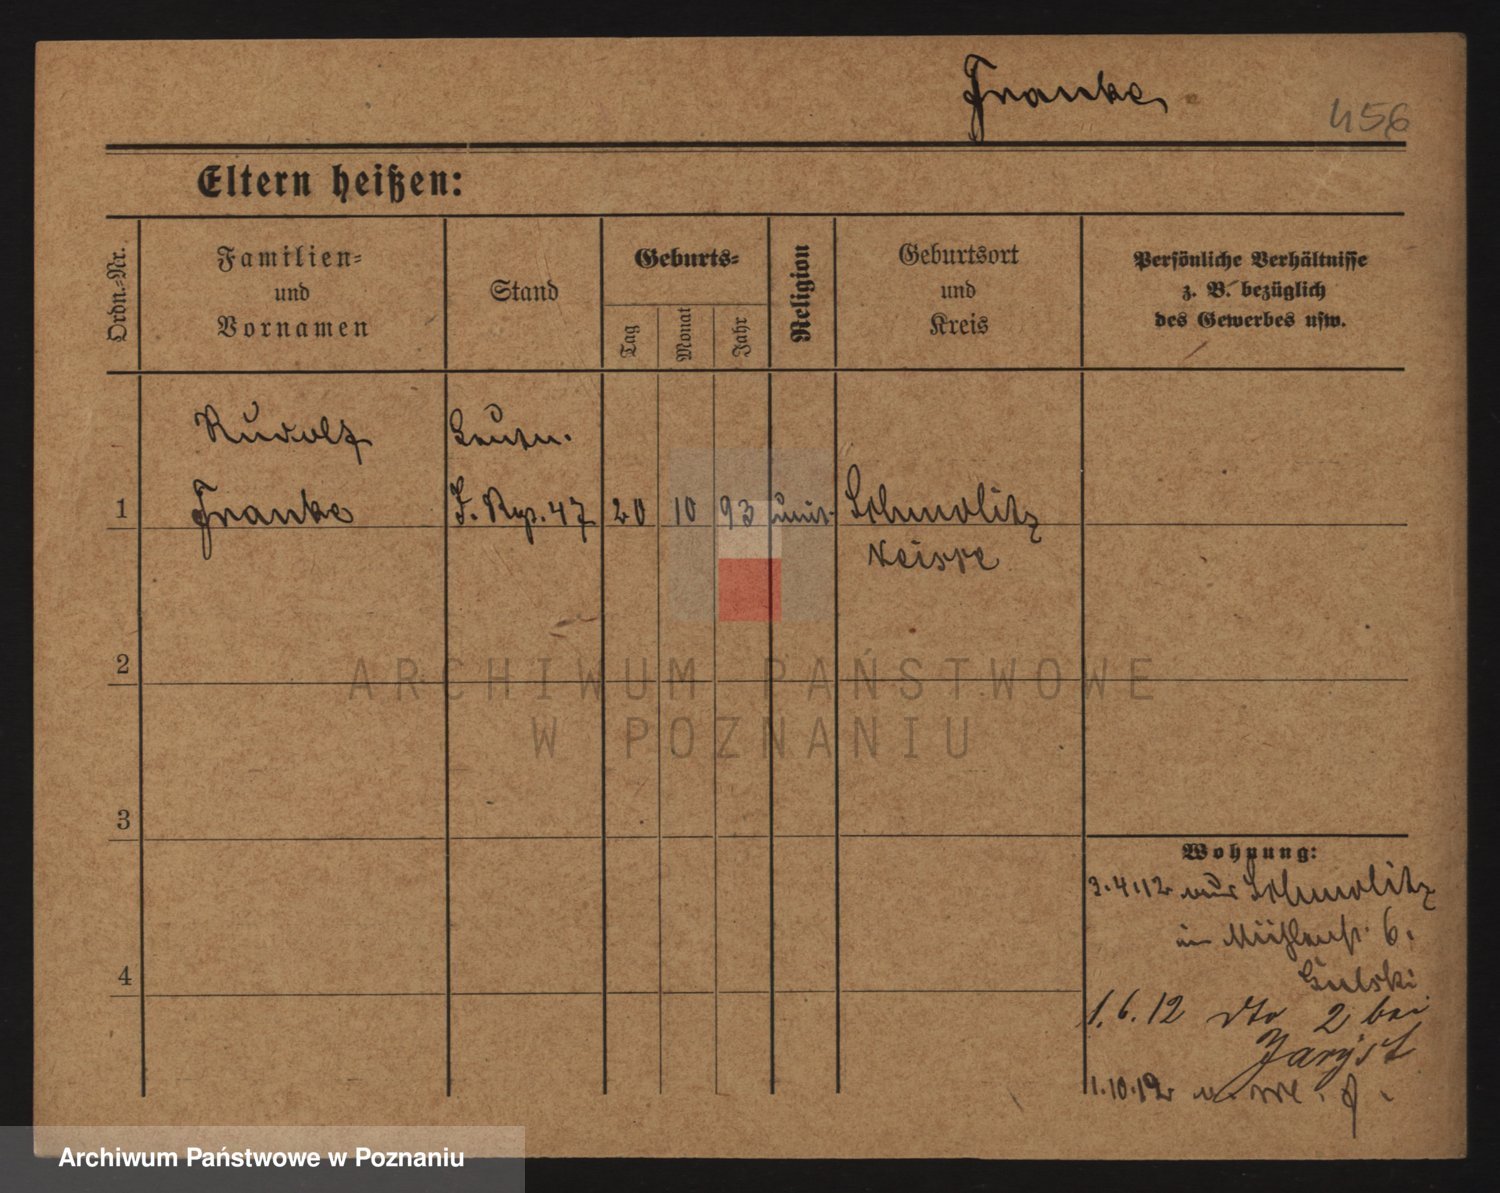 Franke
456
Eltern heißen:
Ordn.-Nr.
Familien-
und
Vornamen
Stand
Geburts-
Tag
Monat
Jahr
Religion
Geburtsort
und
Kreis
Persönliche Verhältnisse
z. B. bezüglich
des Gewerbes usw.
Rudolf
Leutn.
1
Franke
J. Rg. 47
20
10
93
Schmolitz
Neisse
2
ARCHIWUM PAŃSTWOWE
W POZNANIU
3
Wohnung:
3.4.12 aus Schmolitz
in Mühlenst. 6.
4
1.6.12 dto 2 bei
1.10.12
Archiwum Państwowe w Poznaniu